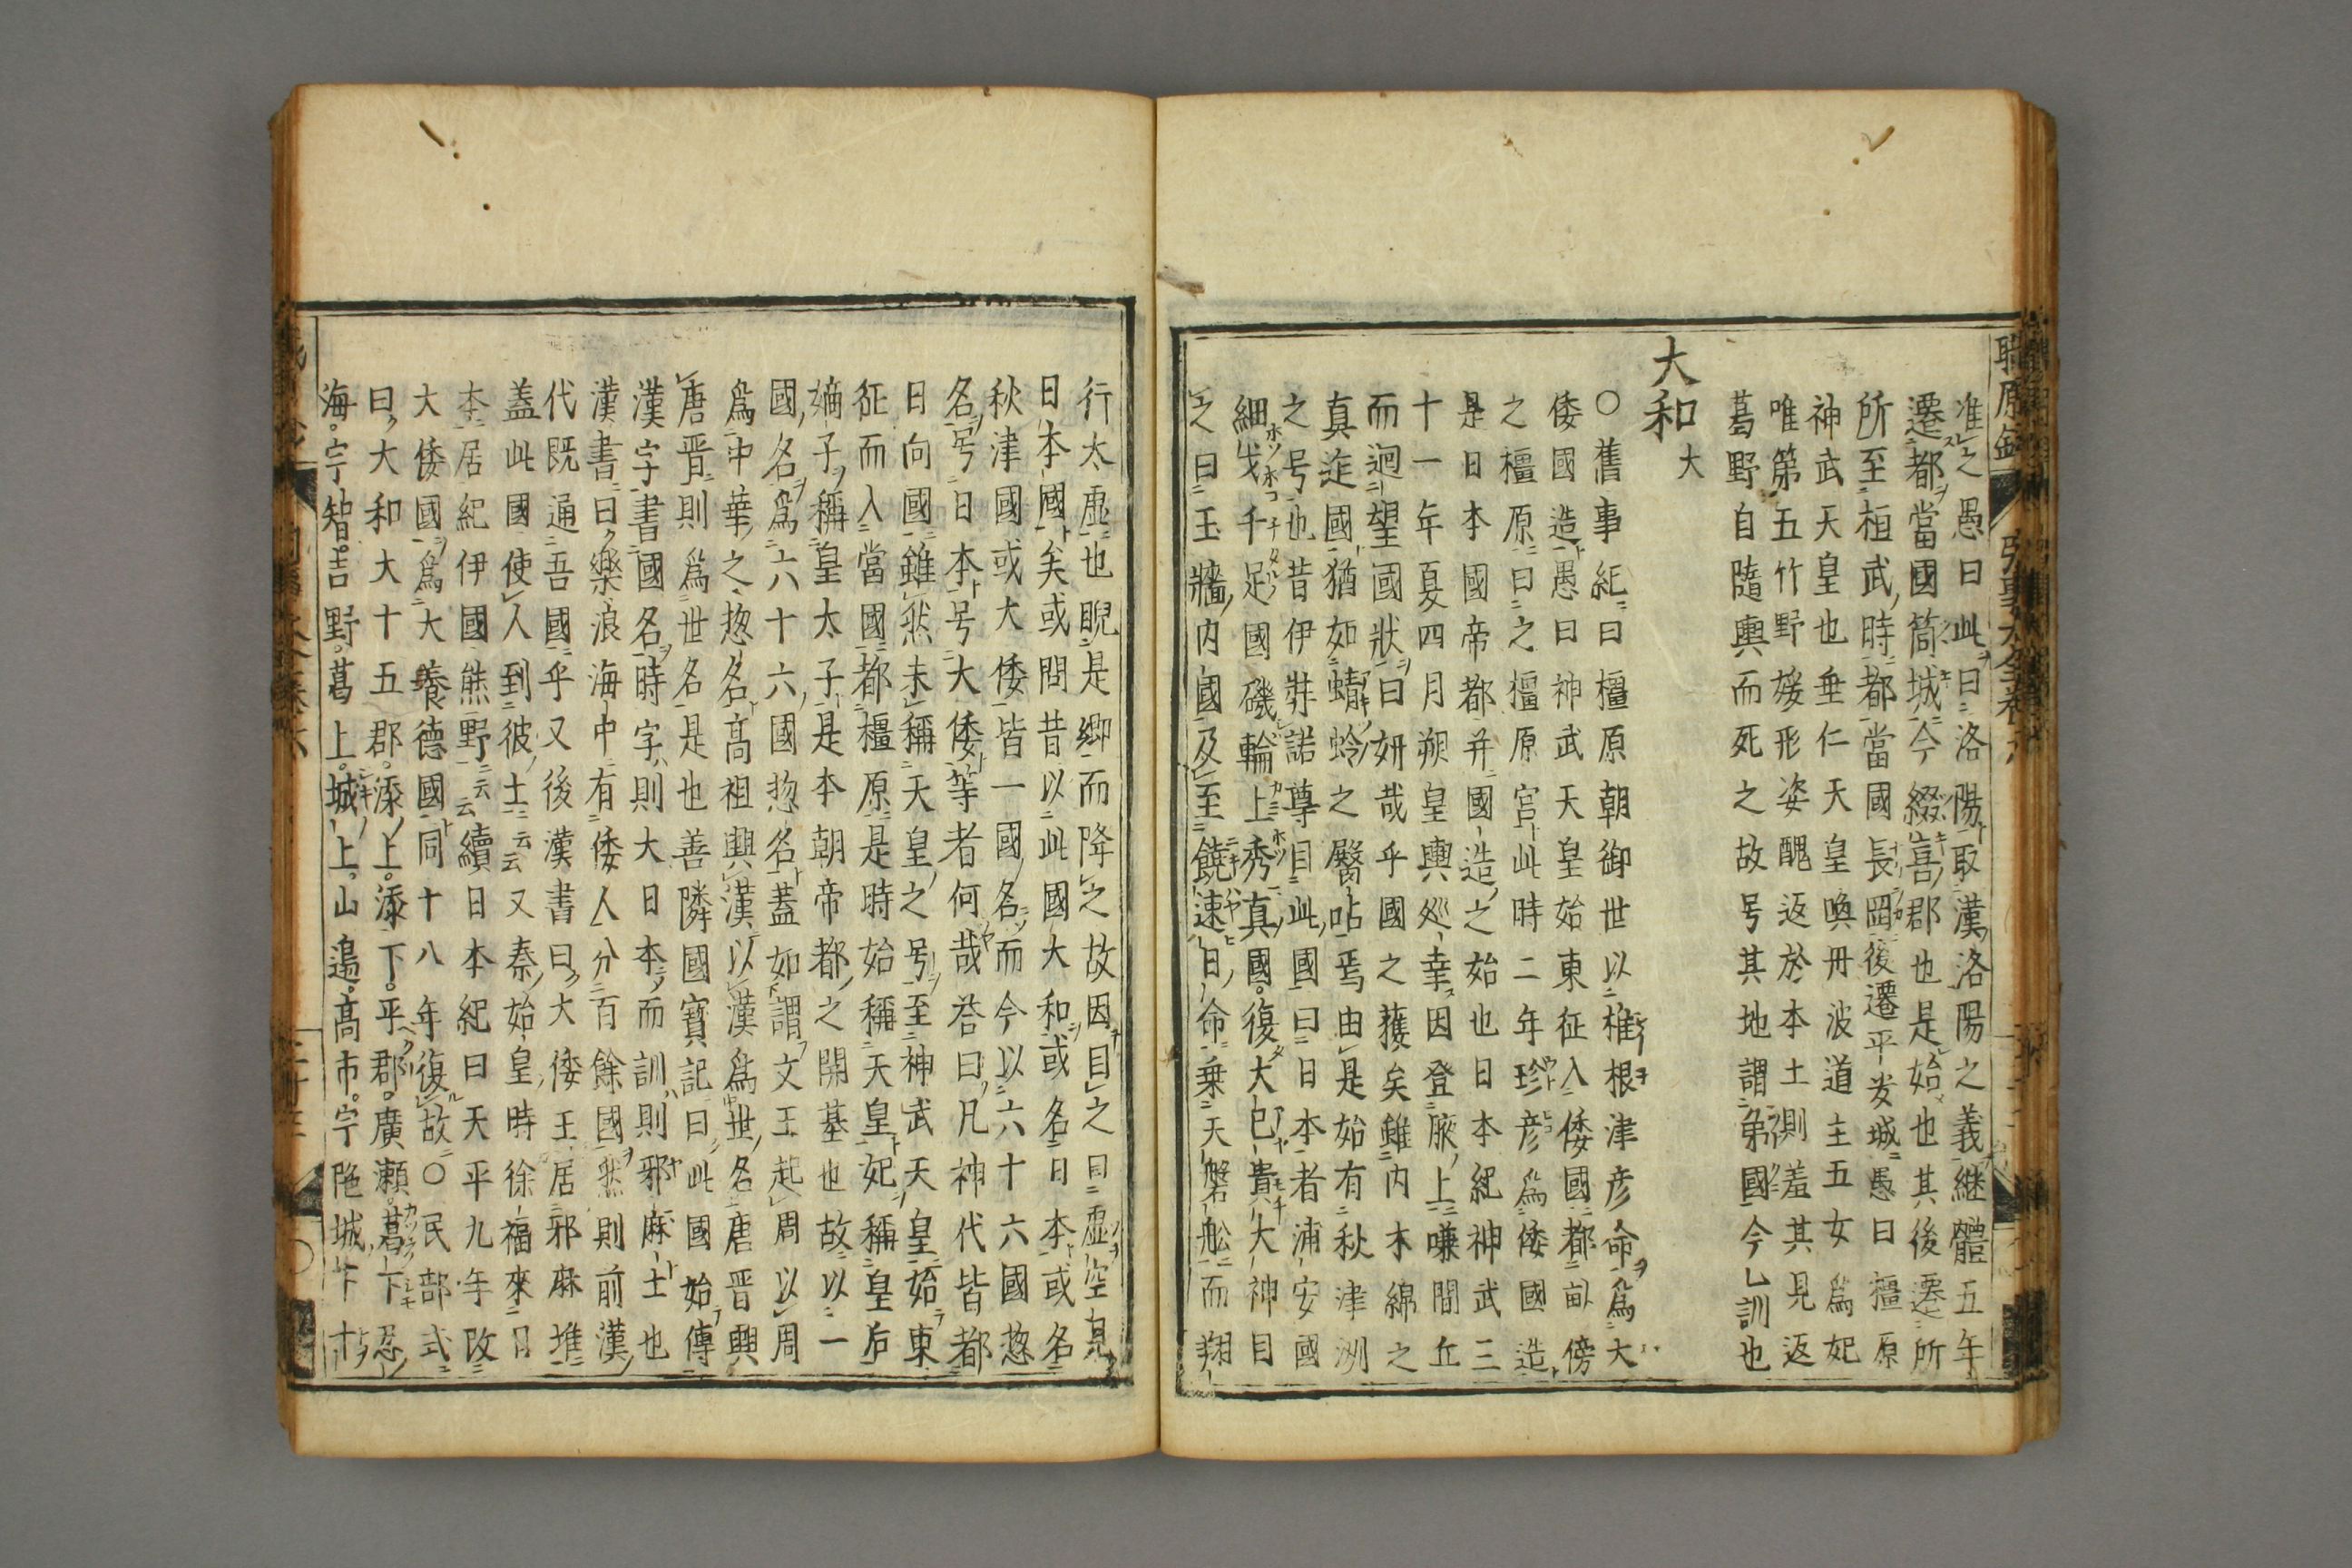 准之愚曰此曰洛陽取漢洛陽之義継體五年
遷都當國筒城今綴喜郡也是始也其後遷所
所至桓武時都當國長岡後遷平安城愚曰橿原
神武天皇也垂仁天皇喚丹波道主五女爲妃
唯第五竹野媛形姿醜返於本土則羞其見返
葛野自隨輿而死之故号其地謂弟國今乙訓也
大和 大
○舊事紀曰橿原朝御世以椎根津彦命爲大
倭國造愚曰神武天皇始東征入倭國都畝傍
之橿原曰之橿原宮此時二年珍彦爲倭國造
是日本國帝都并國造之始也日本紀神武三
十一年夏四月朔皇輿巡幸因登腋上嗛間丘
而迴望國狀曰妍哉乎國之獲矣雖内木綿之
真迮國猶如蜻蛉之臀呫焉由是始有秋津洲
之号也昔伊弉諾尊目此國曰日本者浦安國
細戈千足國磯輪上秀真國復大己貴大神目
之曰玉牆内國及至饒速日命乗天磐舩而翔
行太虚也睨是郷而降之故因目之曰虚空見
日本國矣或問昔以此國大和或名日本或名
秋津國或大倭皆一國名而今以六十六國惣
名号日本号大倭等者何哉荅曰凡神代皆都
日向國雖然未稱天皇之号至神武天皇始東
征而入當國都橿原是時始稱天皇妃稱皇后
嫡子稱皇太子是本朝帝都之開基也故以一
國名爲六十六國惣名蓋如謂文王起周以周
爲中華之惣名高祖興漢以漢爲世名唐晋興
唐晋則爲世名是也善隣國寳記曰此國始傳
漢字書國名時字則大日本而訓則邪麻土也
漢書曰樂浪海中有倭人分百餘國然則前漢
代既通吾國乎又後漢書曰大倭王居邪麻堆
蓋此國使人到彼土云云又秦始皇時徐福來日
本居紀伊國熊野云云續日本紀曰天平九年改
大倭國爲大養德國同十八年復故○民部式
曰大和大十五郡添上添下平郡廣瀬葛下忍
海宇智吉野葛上城上山邉高市宇陁城下十